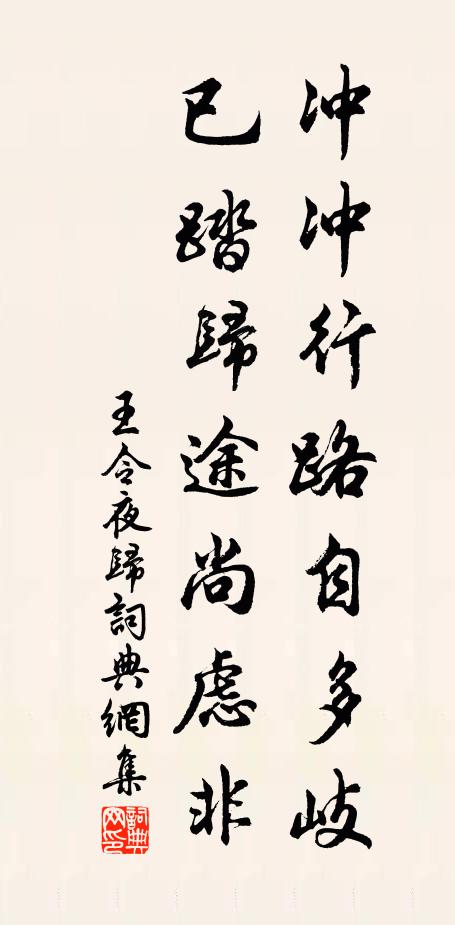 冲冲行路自多歧
已踏歸途尚慮非
王令夜歸詞典網集
詞典网印